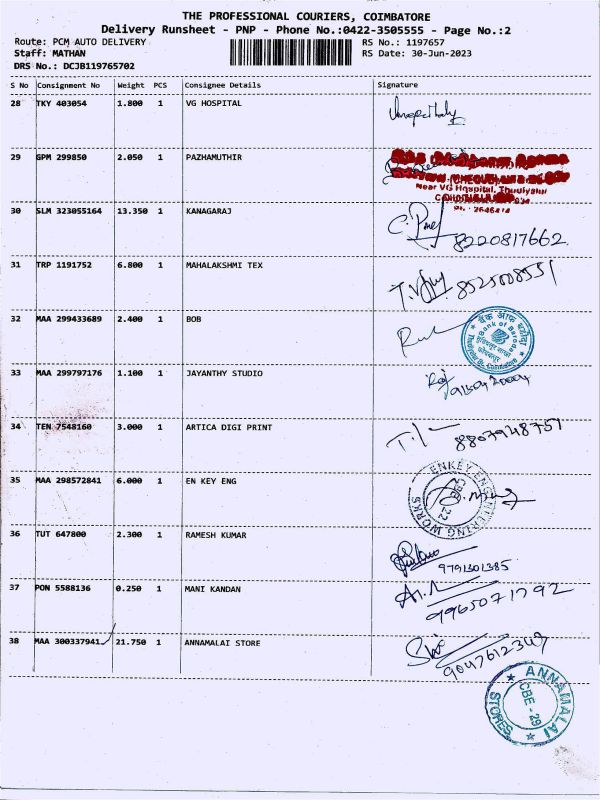 THE PROFESSIONAL COURIERS, COIMBATORE
Delivery Runsheet - PNP - Phone No.:0422-3505555 - Page No.:2
Route: PCM AUTO DELIVERY RS No.: 1197657
Staff: MATHAN RS Date: 30-Jun-2023
DRS No.: DCJB119765702
S No Consignment No Weight PCS Consignee Details Signature
28 TKY 403054 1.800 1 VG HOSPITAL
29 GPM 299850 2.050 1 PAZHAMUTHIR
Near VG Hospital, Thudiyalur
30 SLM 323055164 13.350 1 KANAGARAJ
8220817662
31 TRP 1191752 6.800 1 MAHALAKSHMI TEX
32 MAA 299433689 2.400 1 BOB
बैंक ऑफ़ बड़ौदा
Bank of Baroda
33 MAA 299797176 1.100 1 JAYANTHY STUDIO
34 TEN 7548160 3.000 1 ARTICA DIGI PRINT
8807948751
35 MAA 298572841 6.000 1 EN KEY ENG
ENKEY ENGINEERING WORKS
CBE 22
36 TUT 647800 2.300 1 RAMESH KUMAR
9791301385
37 PON 5588136 0.250 1 MANI KANDAN
9965071792
38 MAA 300337941 21.750 1 ANNAMALAI STORE
9047612347
ANNAMALAI STORES
CBE - 29